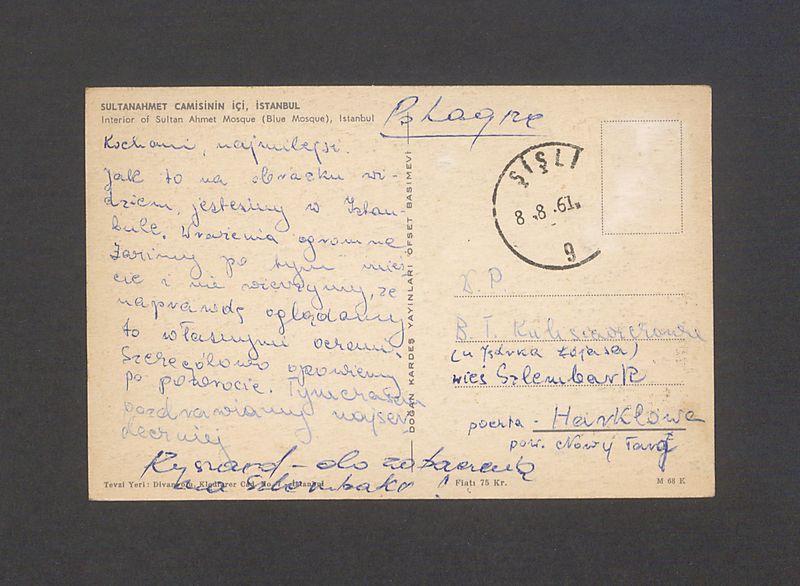 SULTANAHMET CAMİSİNİN İÇİ, İSTANBUL
Interior of Sultan Ahmet Mosque (Blue Mosque), Istanbul
Kochani, najmilejsi.
Jak to na obrazku wi-
dzicie, jesteśmy w Istan-
bule. Wrażenia ogromne
po tym mieś-
cie i nie wierzymy, że
naprawdę oglądamy
to własnymi oczami.
Szczegółowo opowiemy
po powrocie. Tymczasem
pozdrawiamy najser-
deczniej
Ryszard - do zobaczenia
na
DOĞAN KARDEŞ YAYINLARI OFSET BASIMEVİ
ŞİŞLİ
8.8.61
9
W.P.
B. T.
(u Józka)
wieś Szlembark
poczta - Harklowa
pow. Nowy Targ
Tevzi Yeri:
Fiatı 75 Kr.
M 68 K